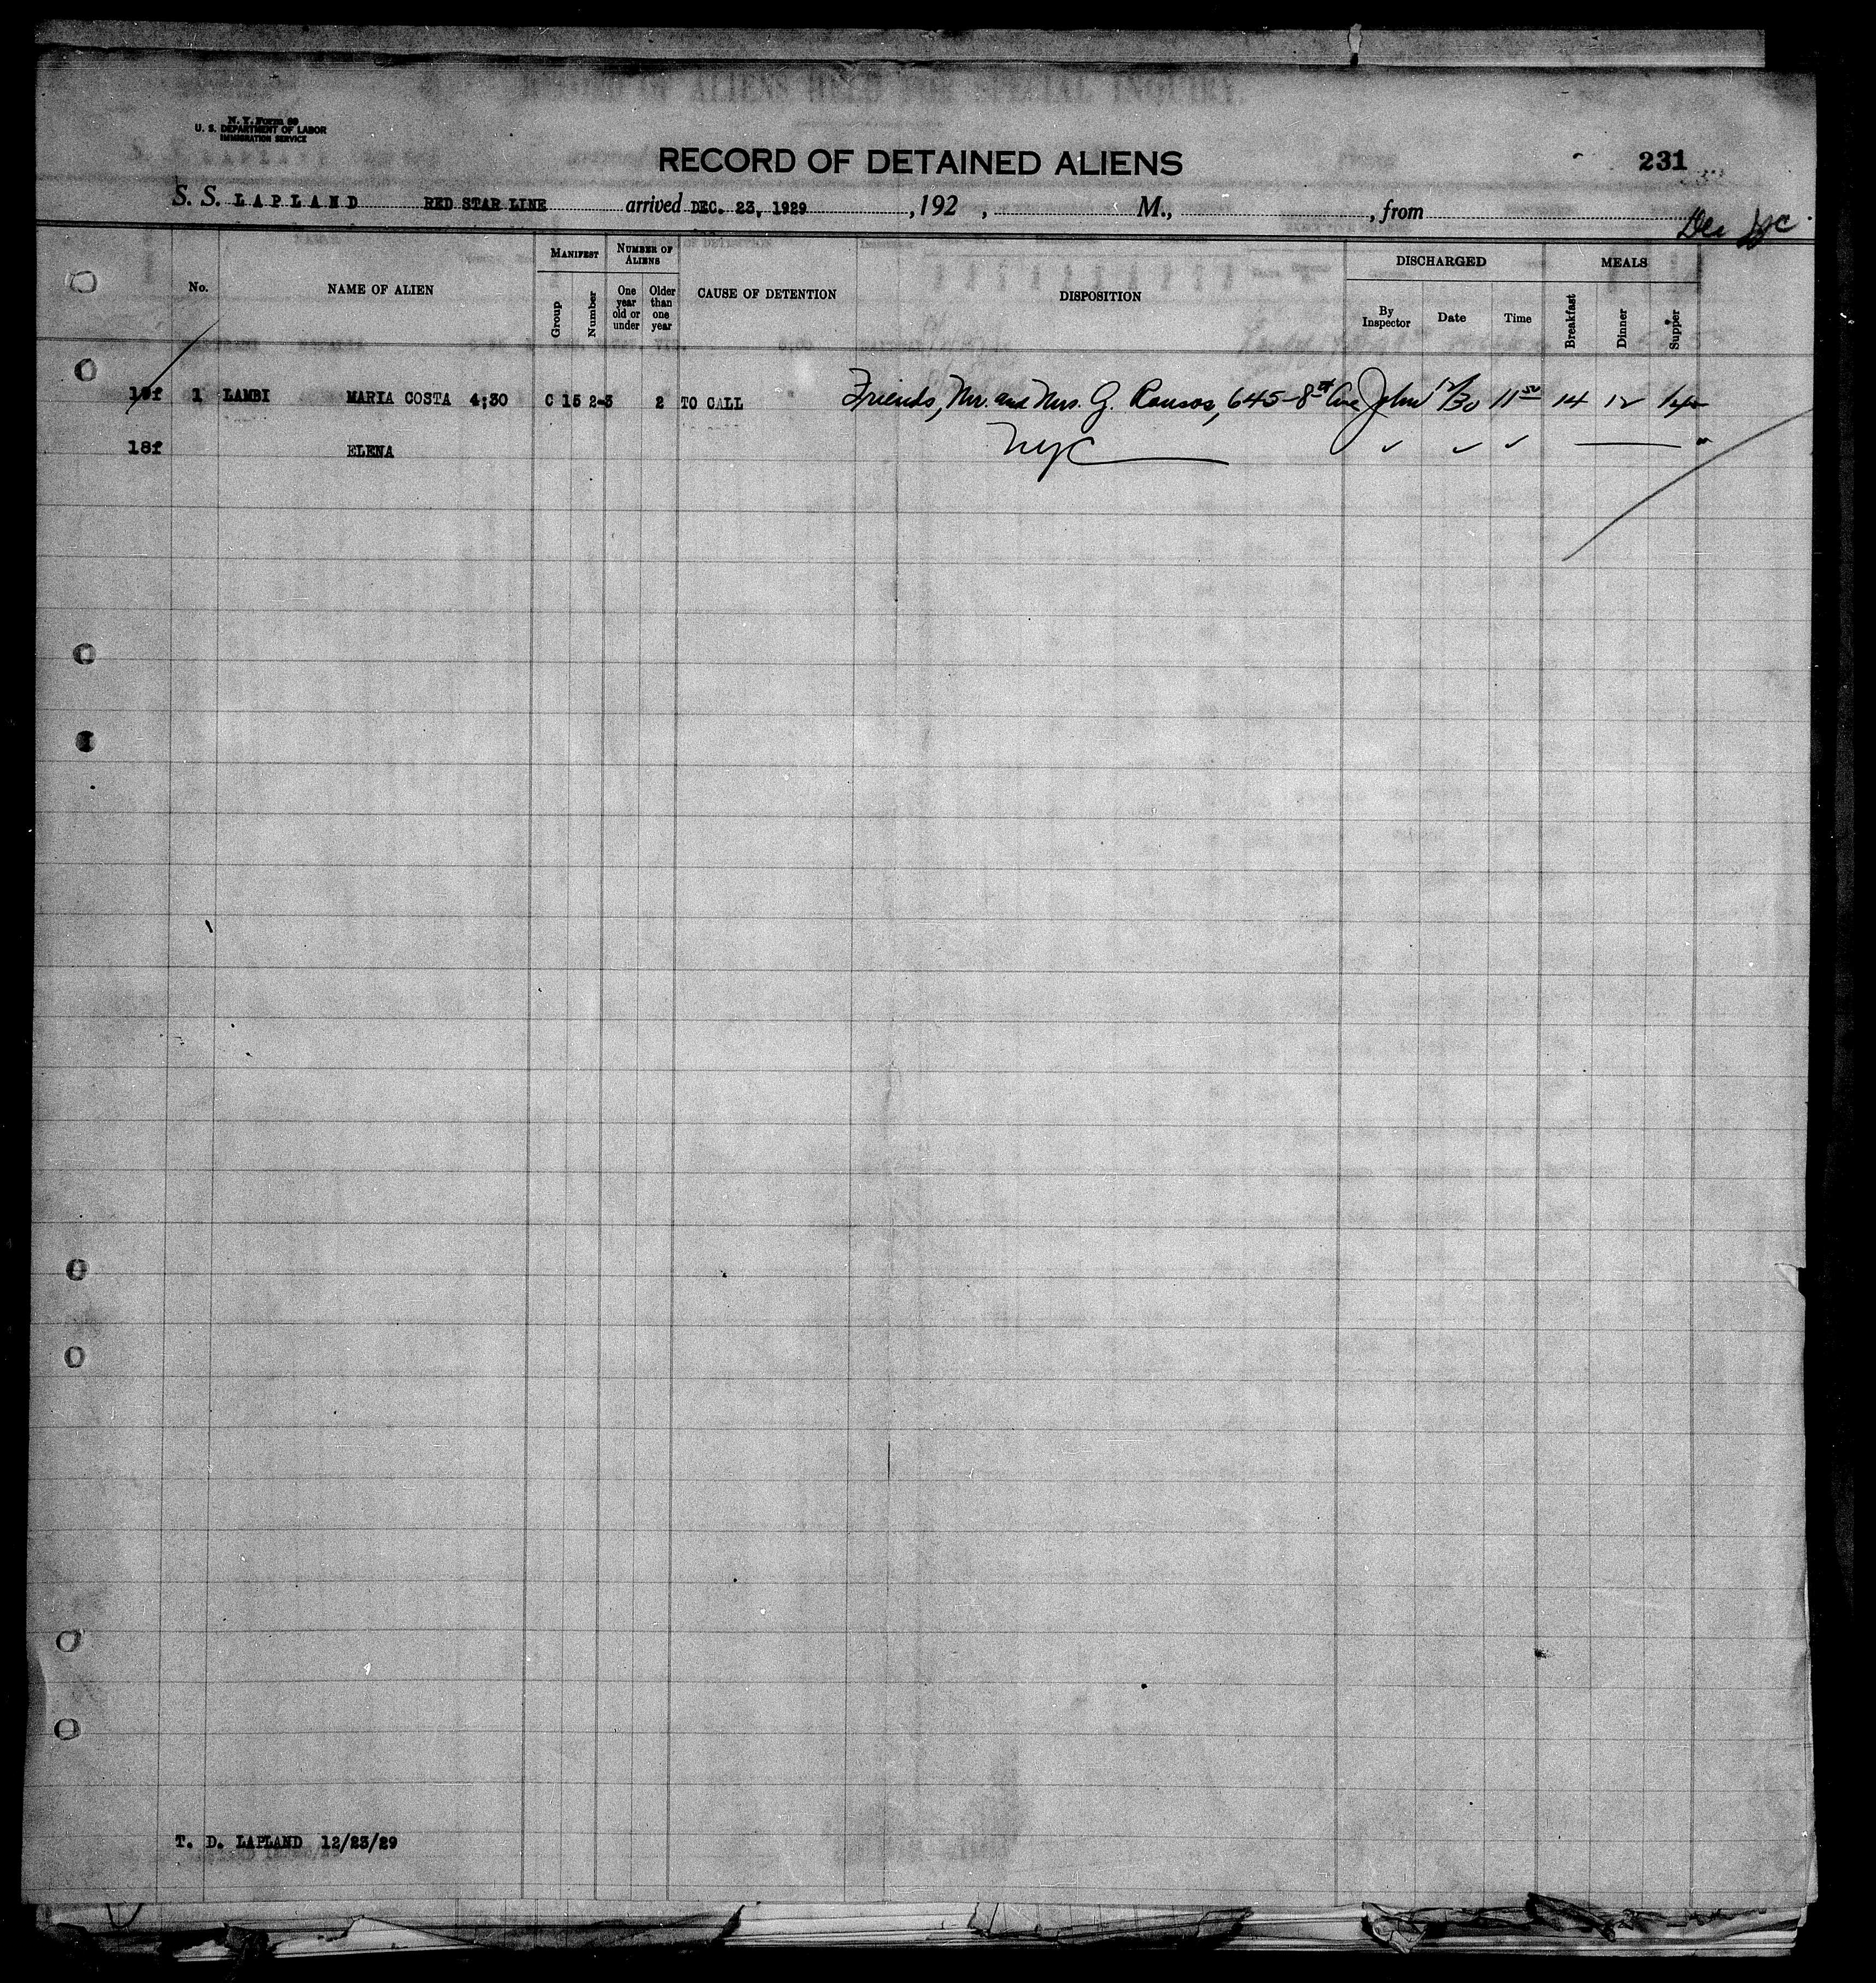 N. Y. Form 89
U. S. DEPARTMENT OF LABOR
IMMIGRATION SERVICE
RECORD OF DETAINED ALIENS
231
S. S. LAPLAND RED STAR LINE arrived DEC. 23, 1929, 192 , M., , from
No.
NAME OF ALIEN
MANIFEST
Group
Number
NUMBER OF ALIENS
One year old or under
Older than one year
CAUSE OF DETENTION
DISPOSITION
DISCHARGED
By Inspector
Date
Time
MEALS
Breakfast
Dinner
Supper
19f 1 LAMBI MARIA COSTA 4;30 C 15 2-3 2 TO CALL Friends, Mr. and Mrs. G. 645-8th Ave John 12/30 11 50 14 12 14
18f ELENA NYC ✓ ✓ ✓ "
T. D. LAPLAND 12/23/29